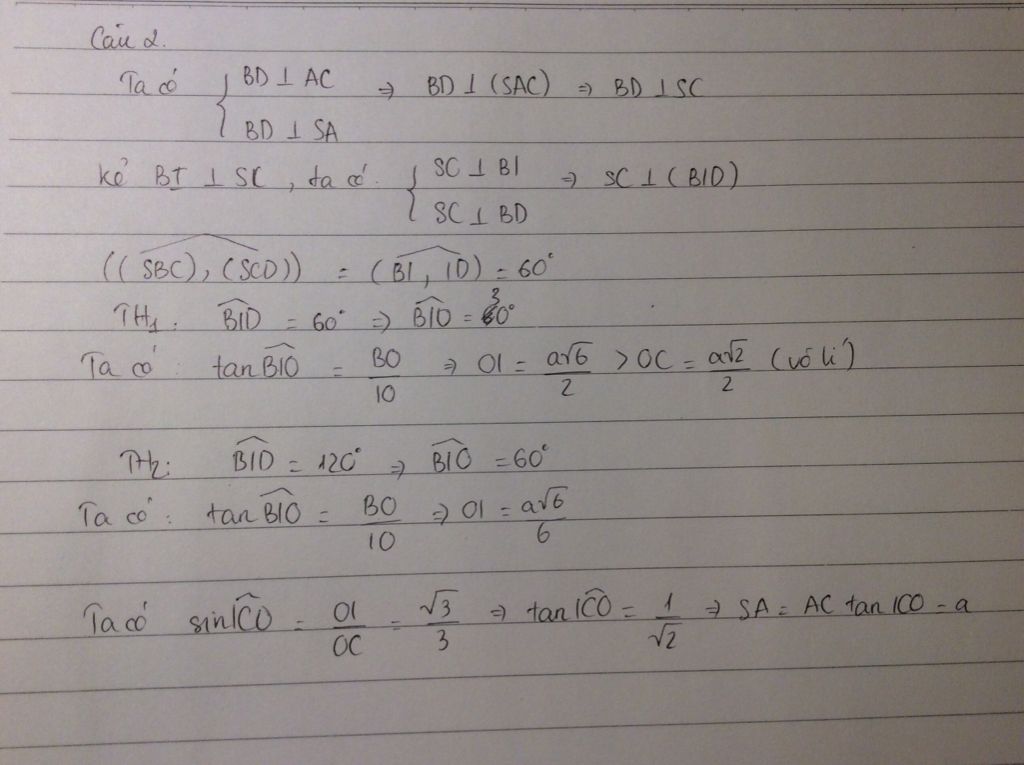 Câu 2.
Ta có { BD ⊥ AC ⇒ BD ⊥ (SAC) ⇒ BD ⊥ SC
BD ⊥ SA
kẻ BI ⊥ SC, ta có: { SC ⊥ BI ⇒ SC ⊥ (BID)
SC ⊥ BD
((SBC), (SCD)) = (BI, ID) = 60°
TH₁: BID = 60° ⇒ BIO = 30°
Ta có: tan BIO = BO/IO ⇒ OI = a√6/2 > OC = a√2/2 (vô lí)
TH₂: BID = 120° ⇒ BIO = 60°
Ta có: tan BIO = BO/IO ⇒ OI = a√6/6
Ta có sin ICO = OI/OC = √3/3 ⇒ tan ICO = 1/√2 ⇒ SA = AC tan ICO = a